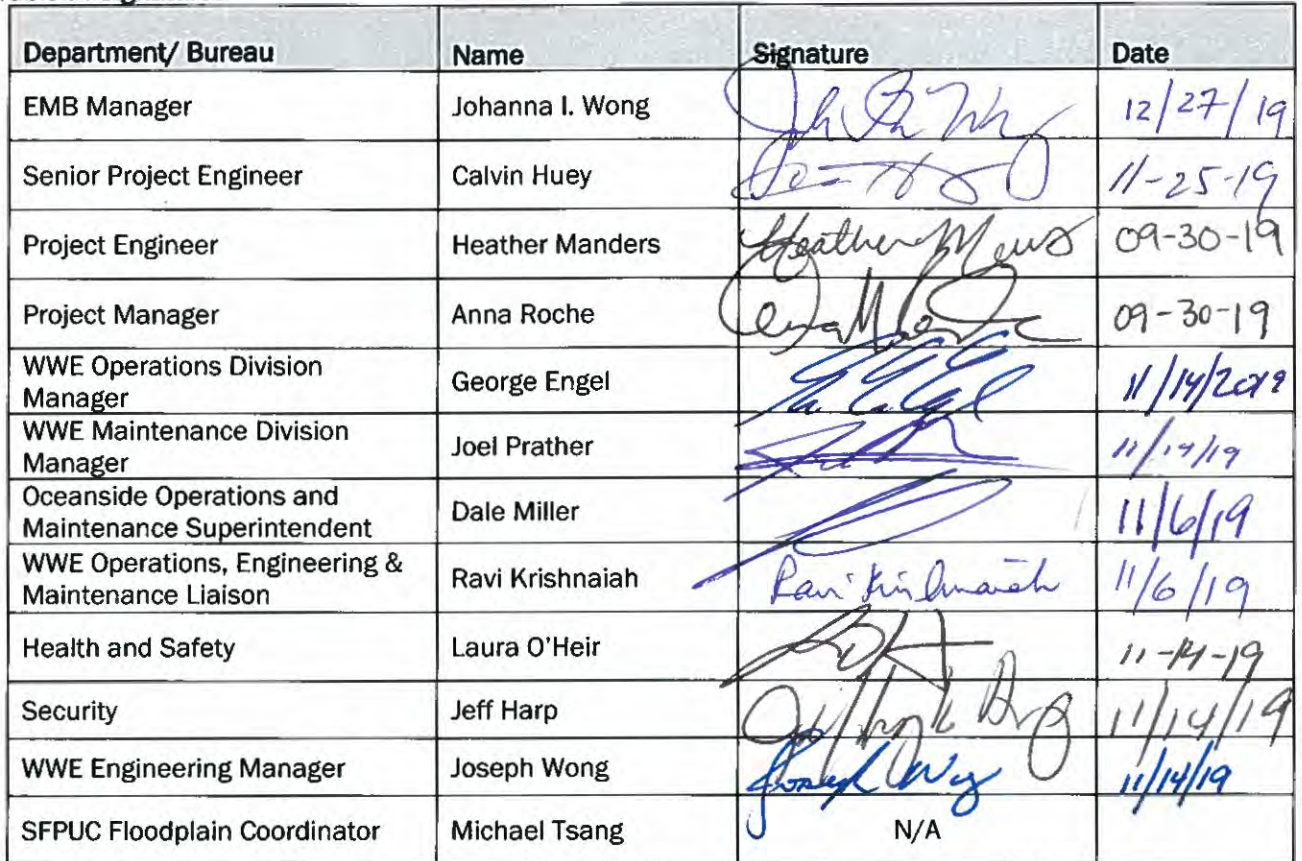 Department/ Bureau Name Signature Date
EMB Manager Johanna I. Wong 12/27/19
Senior Project Engineer Calvin Huey 11-25-19
Project Engineer Heather Manders Heather 09-30-19
Project Manager Anna Roche 09-30-19
WWE Operations Division
Manager George Engel 11/14/2019
WWE Maintenance Division
Manager Joel Prather 11/14/19
Oceanside Operations and
Maintenance Superintendent Dale Miller 11/6/19
WWE Operations, Engineering &
Maintenance Liaison Ravi Krishnaiah Ravi Krishnaiah 11/6/19
Health and Safety Laura O'Heir 11-14-19
Security Jeff Harp 11/14/19
WWE Engineering Manager Joseph Wong Joseph Wong 11/14/19
SFPUC Floodplain Coordinator Michael Tsang N/A